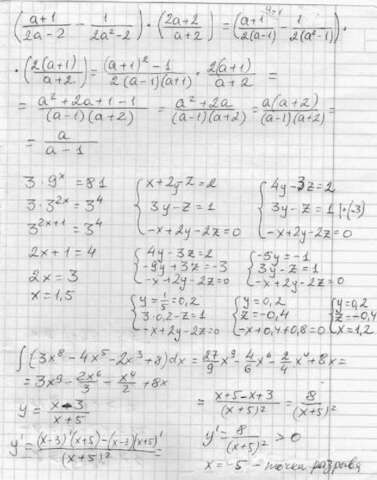 (a+1/2a-2 - 1/2a²-2) · (2a+2/a+2) = (a+1/2(a-1) - 1/2(a²-1)) ·
· (2(a+1)/a+2) = (a+1)²-1/2(a-1)(a+1) · 2(a+1)/a+2 =
= a²+2a+1-1/(a-1)(a+2) = a²+2a/(a-1)(a+2) = a(a+2)/(a-1)(a+2) =
= a/a-1
3·9ˣ = 81
3·3²ˣ = 3⁴
3²ˣ⁺¹ = 3⁴
2x+1 = 4
2x = 3
x = 1,5
{ x+2y-z=2
3y-z=1
-x+2y-2z=0
{ 4y-3z=2
3y-z=1 |·(-3)
-x+2y-2z=0
{ 4y-3z=2
-9y+3z=-3
-x+2y-2z=0
{ -5y=-1
3y-z=1
-x+2y-2z=0
{ y=1/5=0,2
3·0,2-z=1
-x+2y-2z=0
{ y=0,2
z=-0,4
-x+0,4+0,8=0
{ y=0,2
z=-0,4
x=1,2
∫(3x⁸-4x⁵-2x³+8)dx = 27/9 x⁹ - 4/6 x⁶ - 2/4 x⁴ + 8x =
= 3x⁹ - 2x⁶/3 - x⁴/2 + 8x
y = x-3/x+5
y' = (x-3)'(x+5)-(x-3)(x+5)'/(x+5)² =
= x+5-x+3/(x+5)² = 8/(x+5)²
y' = 8/(x+5)² > 0
x = -5 - точка разрыва